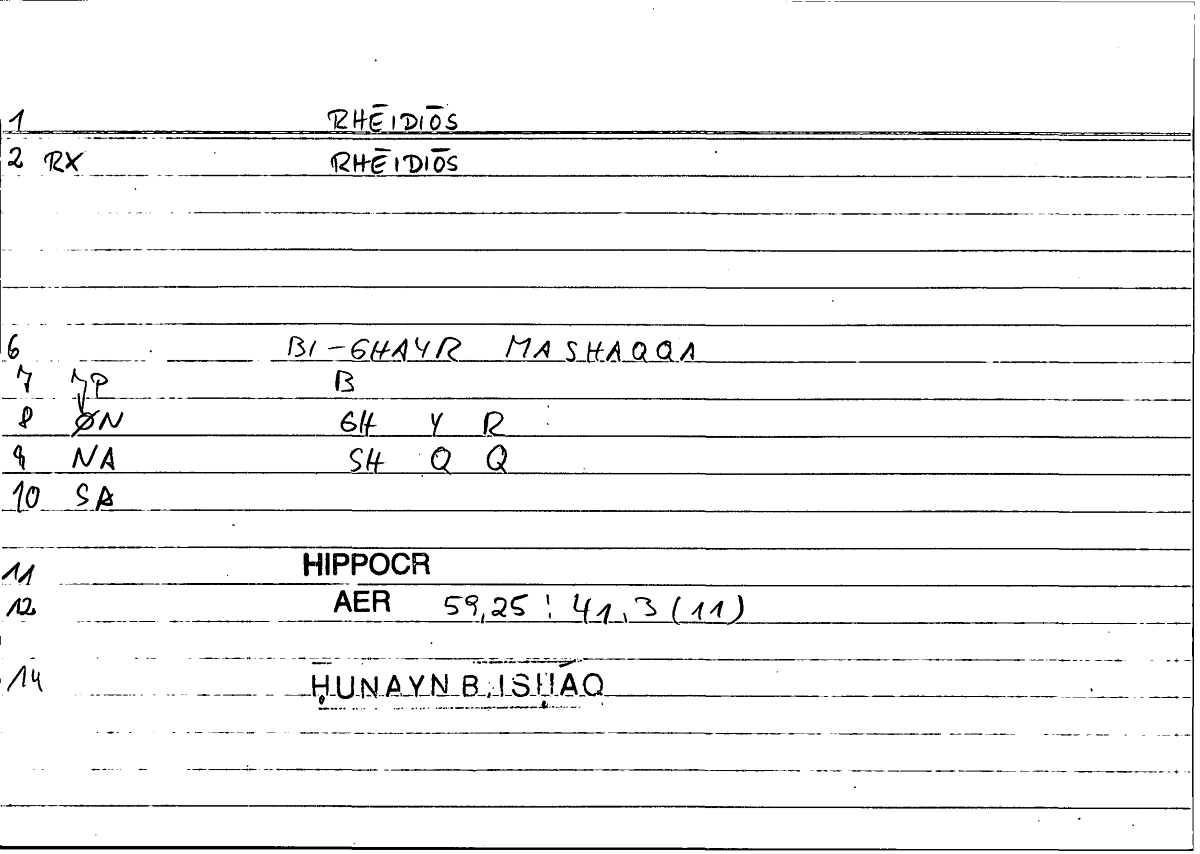 1 RHĒIDIŌS
2 RX RHĒIDIŌS
6 BI-GHAYR MASHAQQA
7 JP B
8 ØN GH Y R
9 NA SH Q Q
10 SA
11 HIPPOCR
12 AER 59,25 : 41,3 (11)
14 ḤUNAYN B. ISḤĀQ